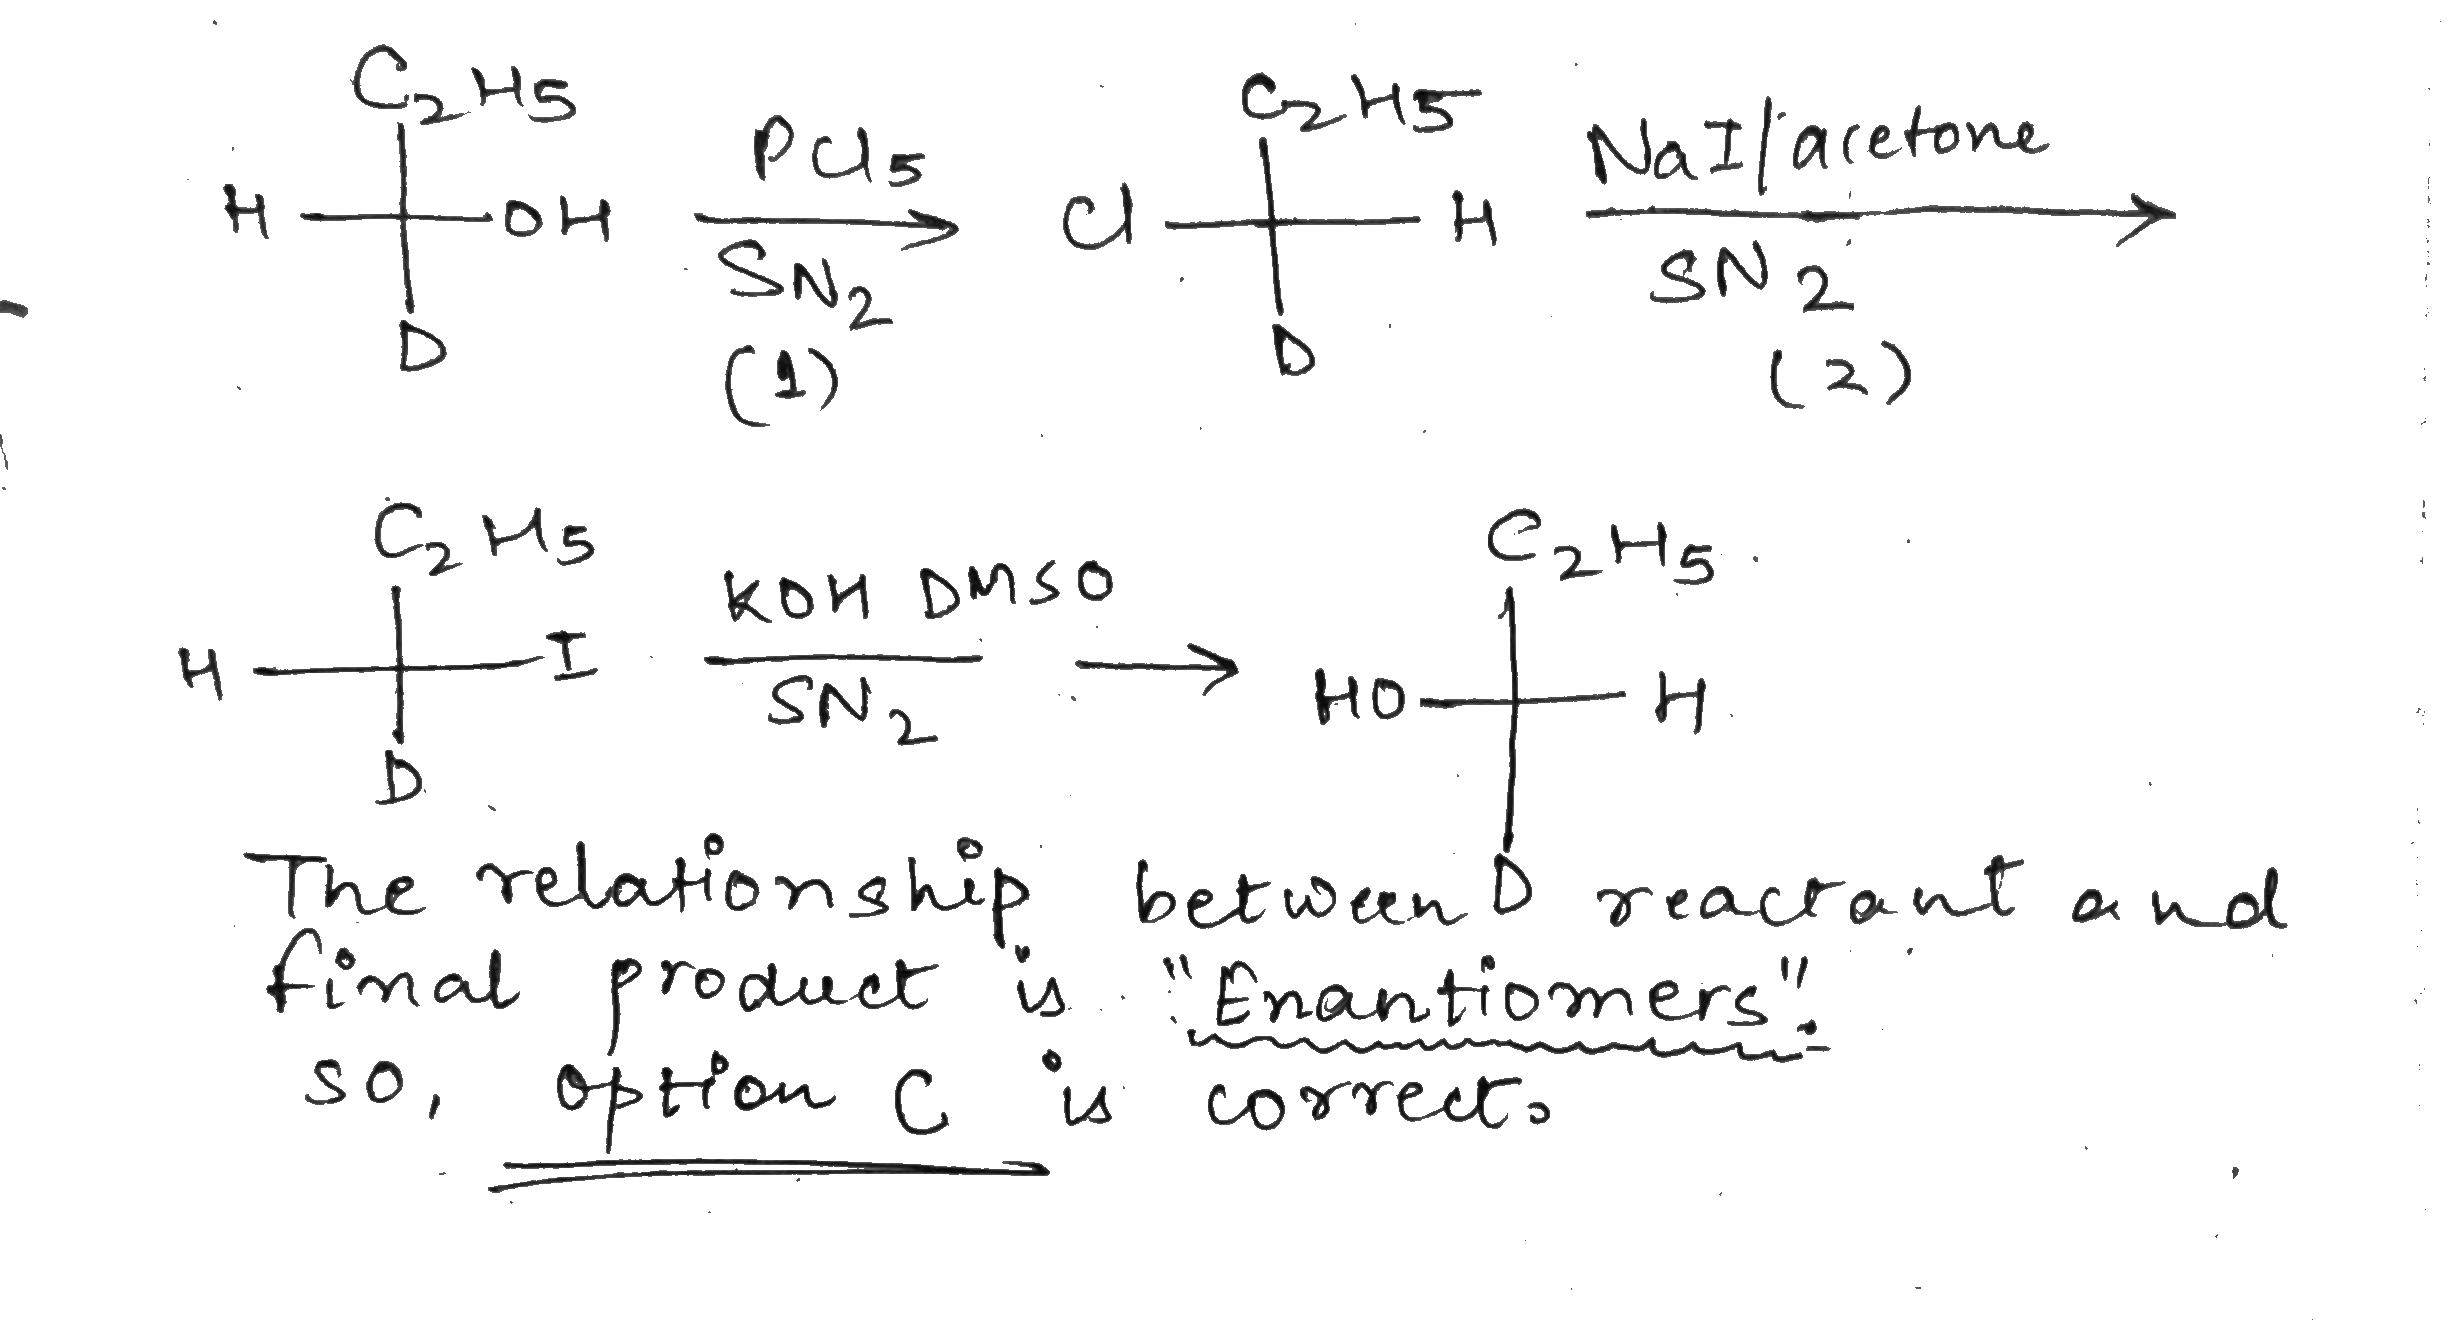 C2H5
H OH
D
PCl5
SN2
(1)
C2H5
Cl H
D
NaI/acetone
SN2
(2)
C2H5
H I
D
KOH DMSO
SN2
C2H5
HO H
D
The relationship between reactant and
final product is "Enantiomers".
so, option C is correct.